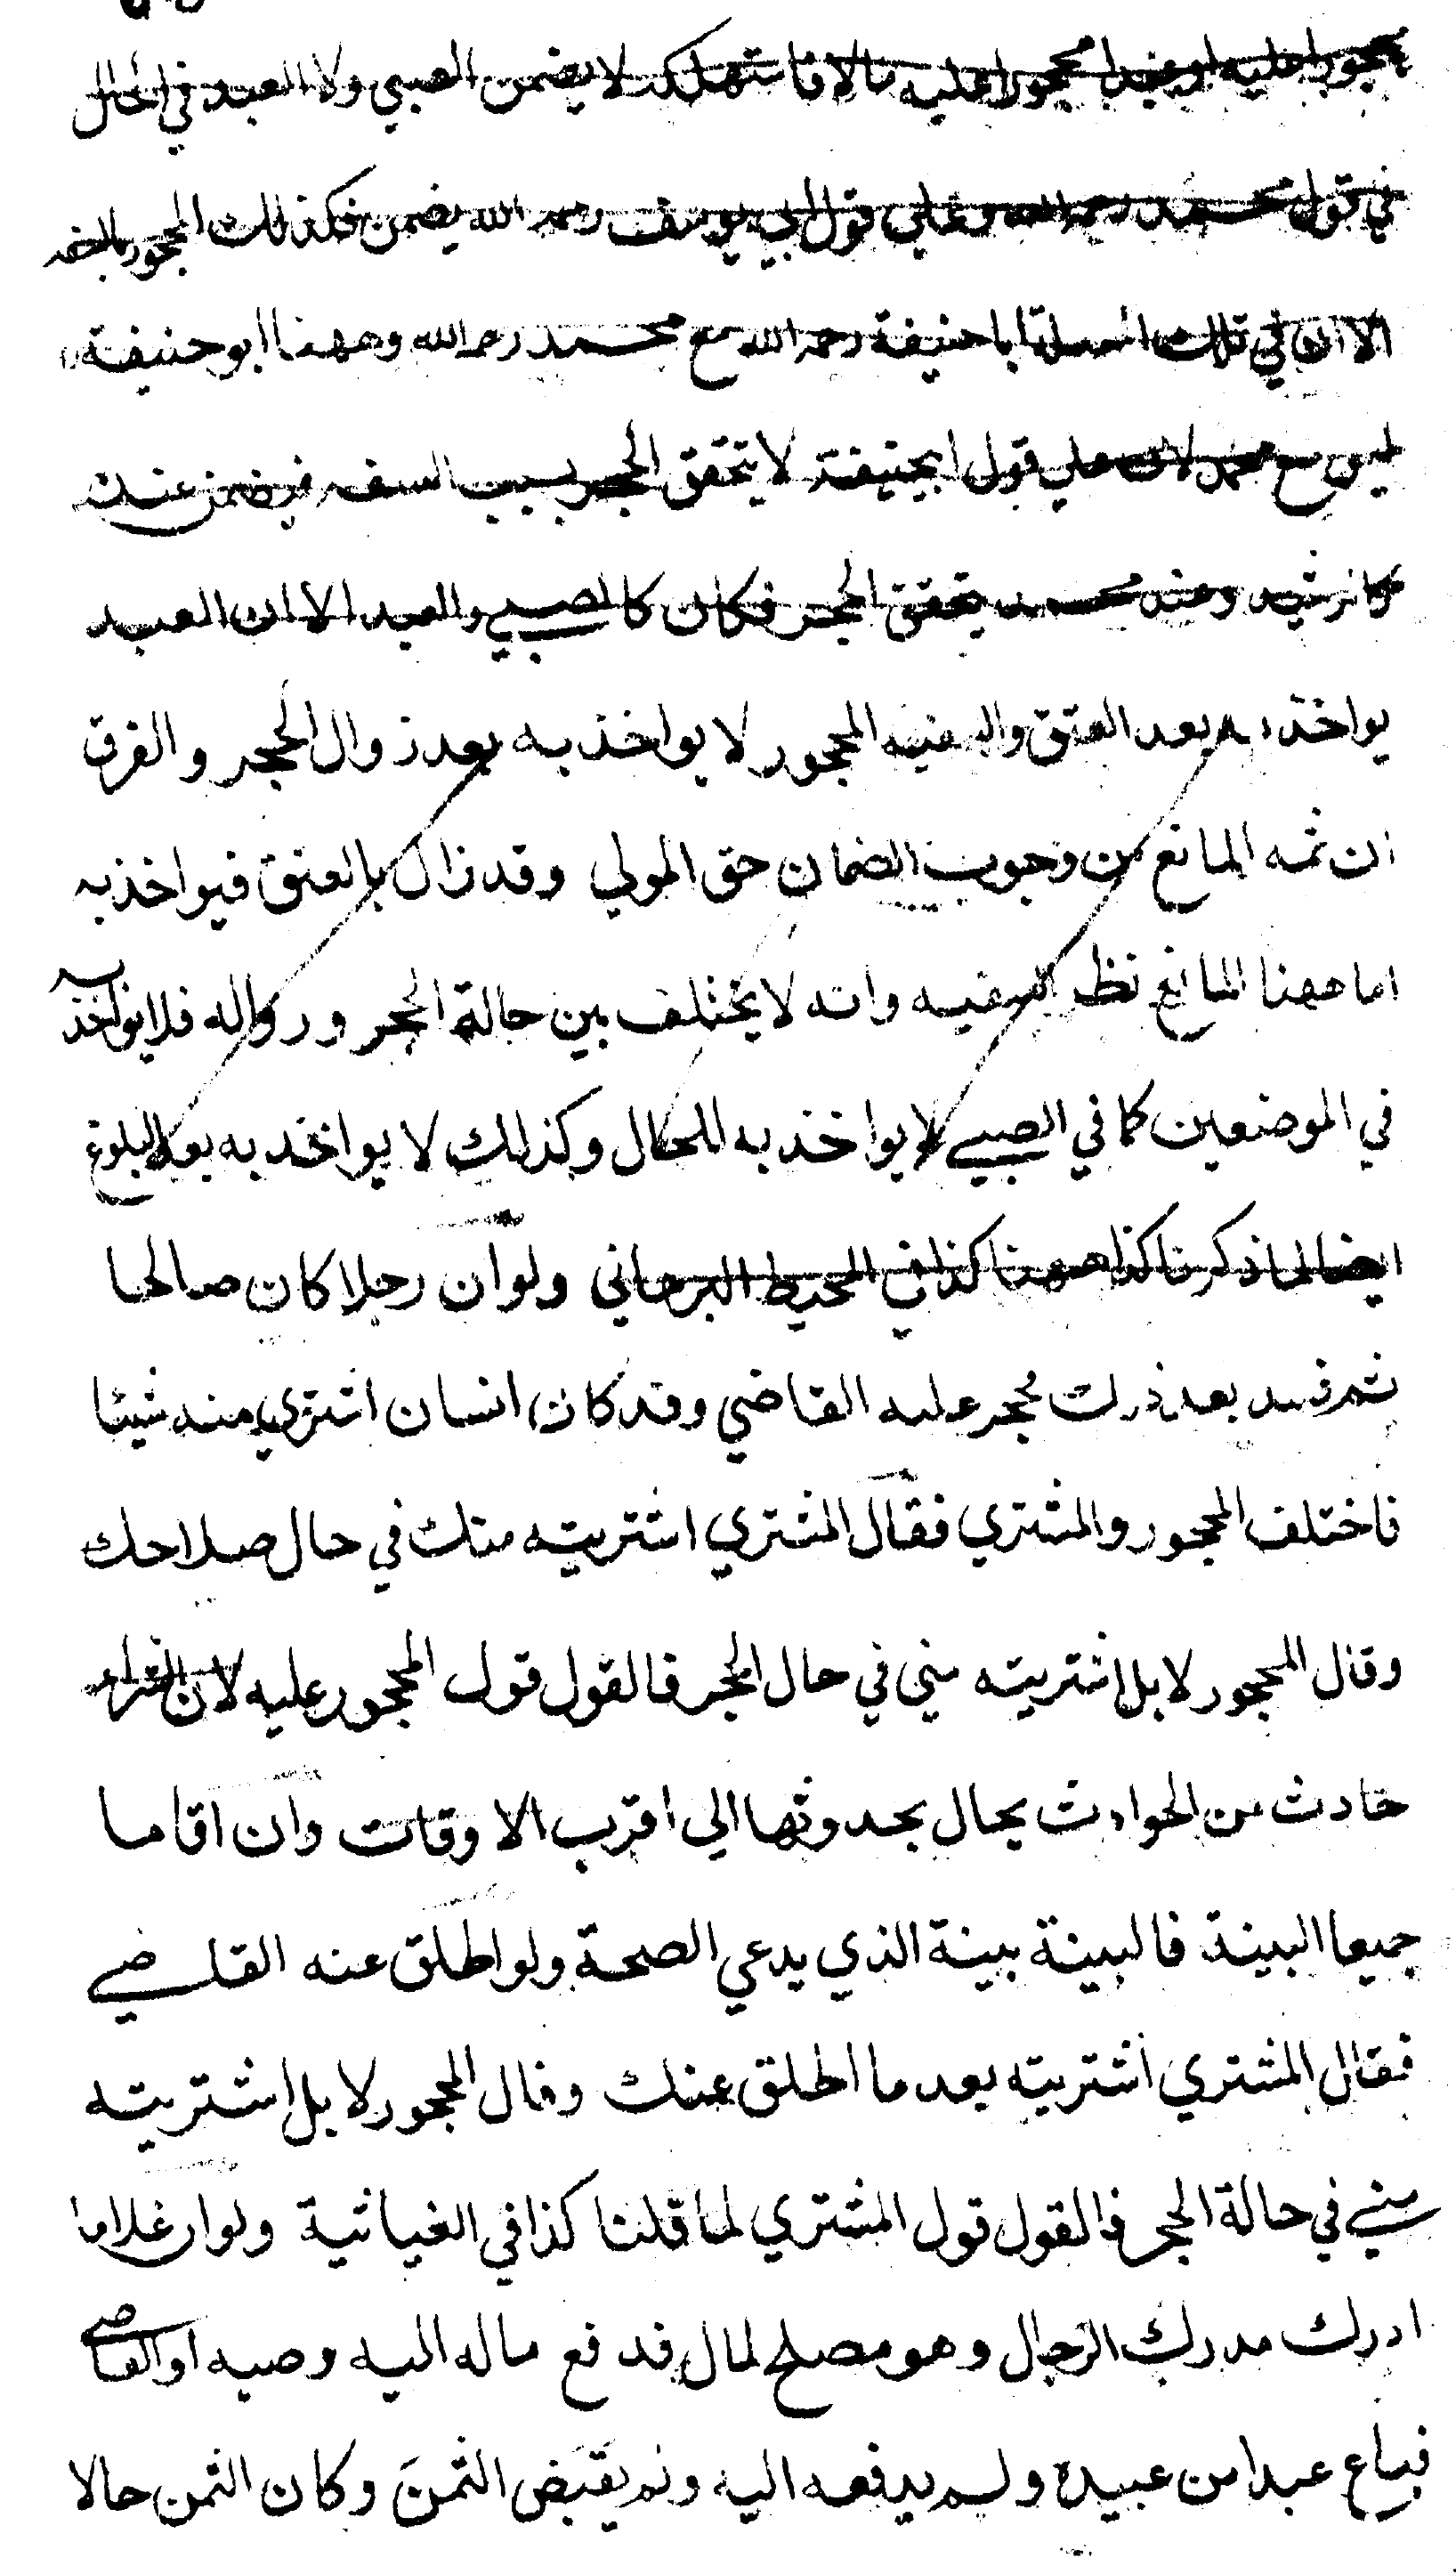 محجورا عليه او عبدا محجورا عليه مالا فاستهلكه لا يضمن الصبي ولا العبد في الحال
في قول محمد رحمه الله وعلى قول ابي يوسف رحمه الله يضمن فكذلك المحجور بالسفه
الا ان في تلك المسئلة ابا حنيفة رحمه الله مع محمد رحمه الله وههنا ابو حنيفة
ليس مع محمد لان على قول ابيحنيفة لا يتحقق الحجر بسبب السفه فيضمن عنده
كالرشيد وعند محمد يتحقق الحجر فكان كالصبي والعبد الا ان العبد
يواخذ به بعد العتق والسفيه المحجور لا يواخذ به بعد زوال الحجر والفرق
ان ثمه المانع من وجوب الضمان حق المولي وقد زال بالعتق فيواخذ به
اما ههنا المانع نظر السفيه وانه لا يختلف بين حالة الحجر وزواله فلا يواخذ به
في الموضعين كما في الصبي لا يواخذ به للحال وكذلك لا يواخذ به بعد البلوغ
ايضا لما ذكرنا كذا ههنا كذا في المحيط البرهاني ولو ان رجلا كان صالحا
ثم فسد بعد ذلك فحجر عليه القاضي وقد كان انسان اشتري منه شيئا
فاختلف المحجور والمشتري فقال المشتري اشتريته منك في حال صلاحك
وقال المحجور لا بل اشتريته مني في حال الحجر فالقول قول المحجور عليه لان الشراء
حادث من الحوادث يحال بحدوثها الي اقرب الاوقات وان اقاما
جميعا البينة فالبينة بينة الذي يدعي الصحة ولو اطلق عنه القاضي
فقال المشتري اشتريته بعد ما اطلق عنك وقال المحجور لا بل اشتريته
مني في حالة الحجر فالقول قول المشتري لما قلنا كذا في الغياثية ولو ان غلاما
ادرك مدرك الرجال وهو مصلح لماله فدفع ماله اليه وصيه او القاضي
فباع عبدا من عبيده ولم يدفعه اليه ولم يقبض الثمن وكان الثمن حالا